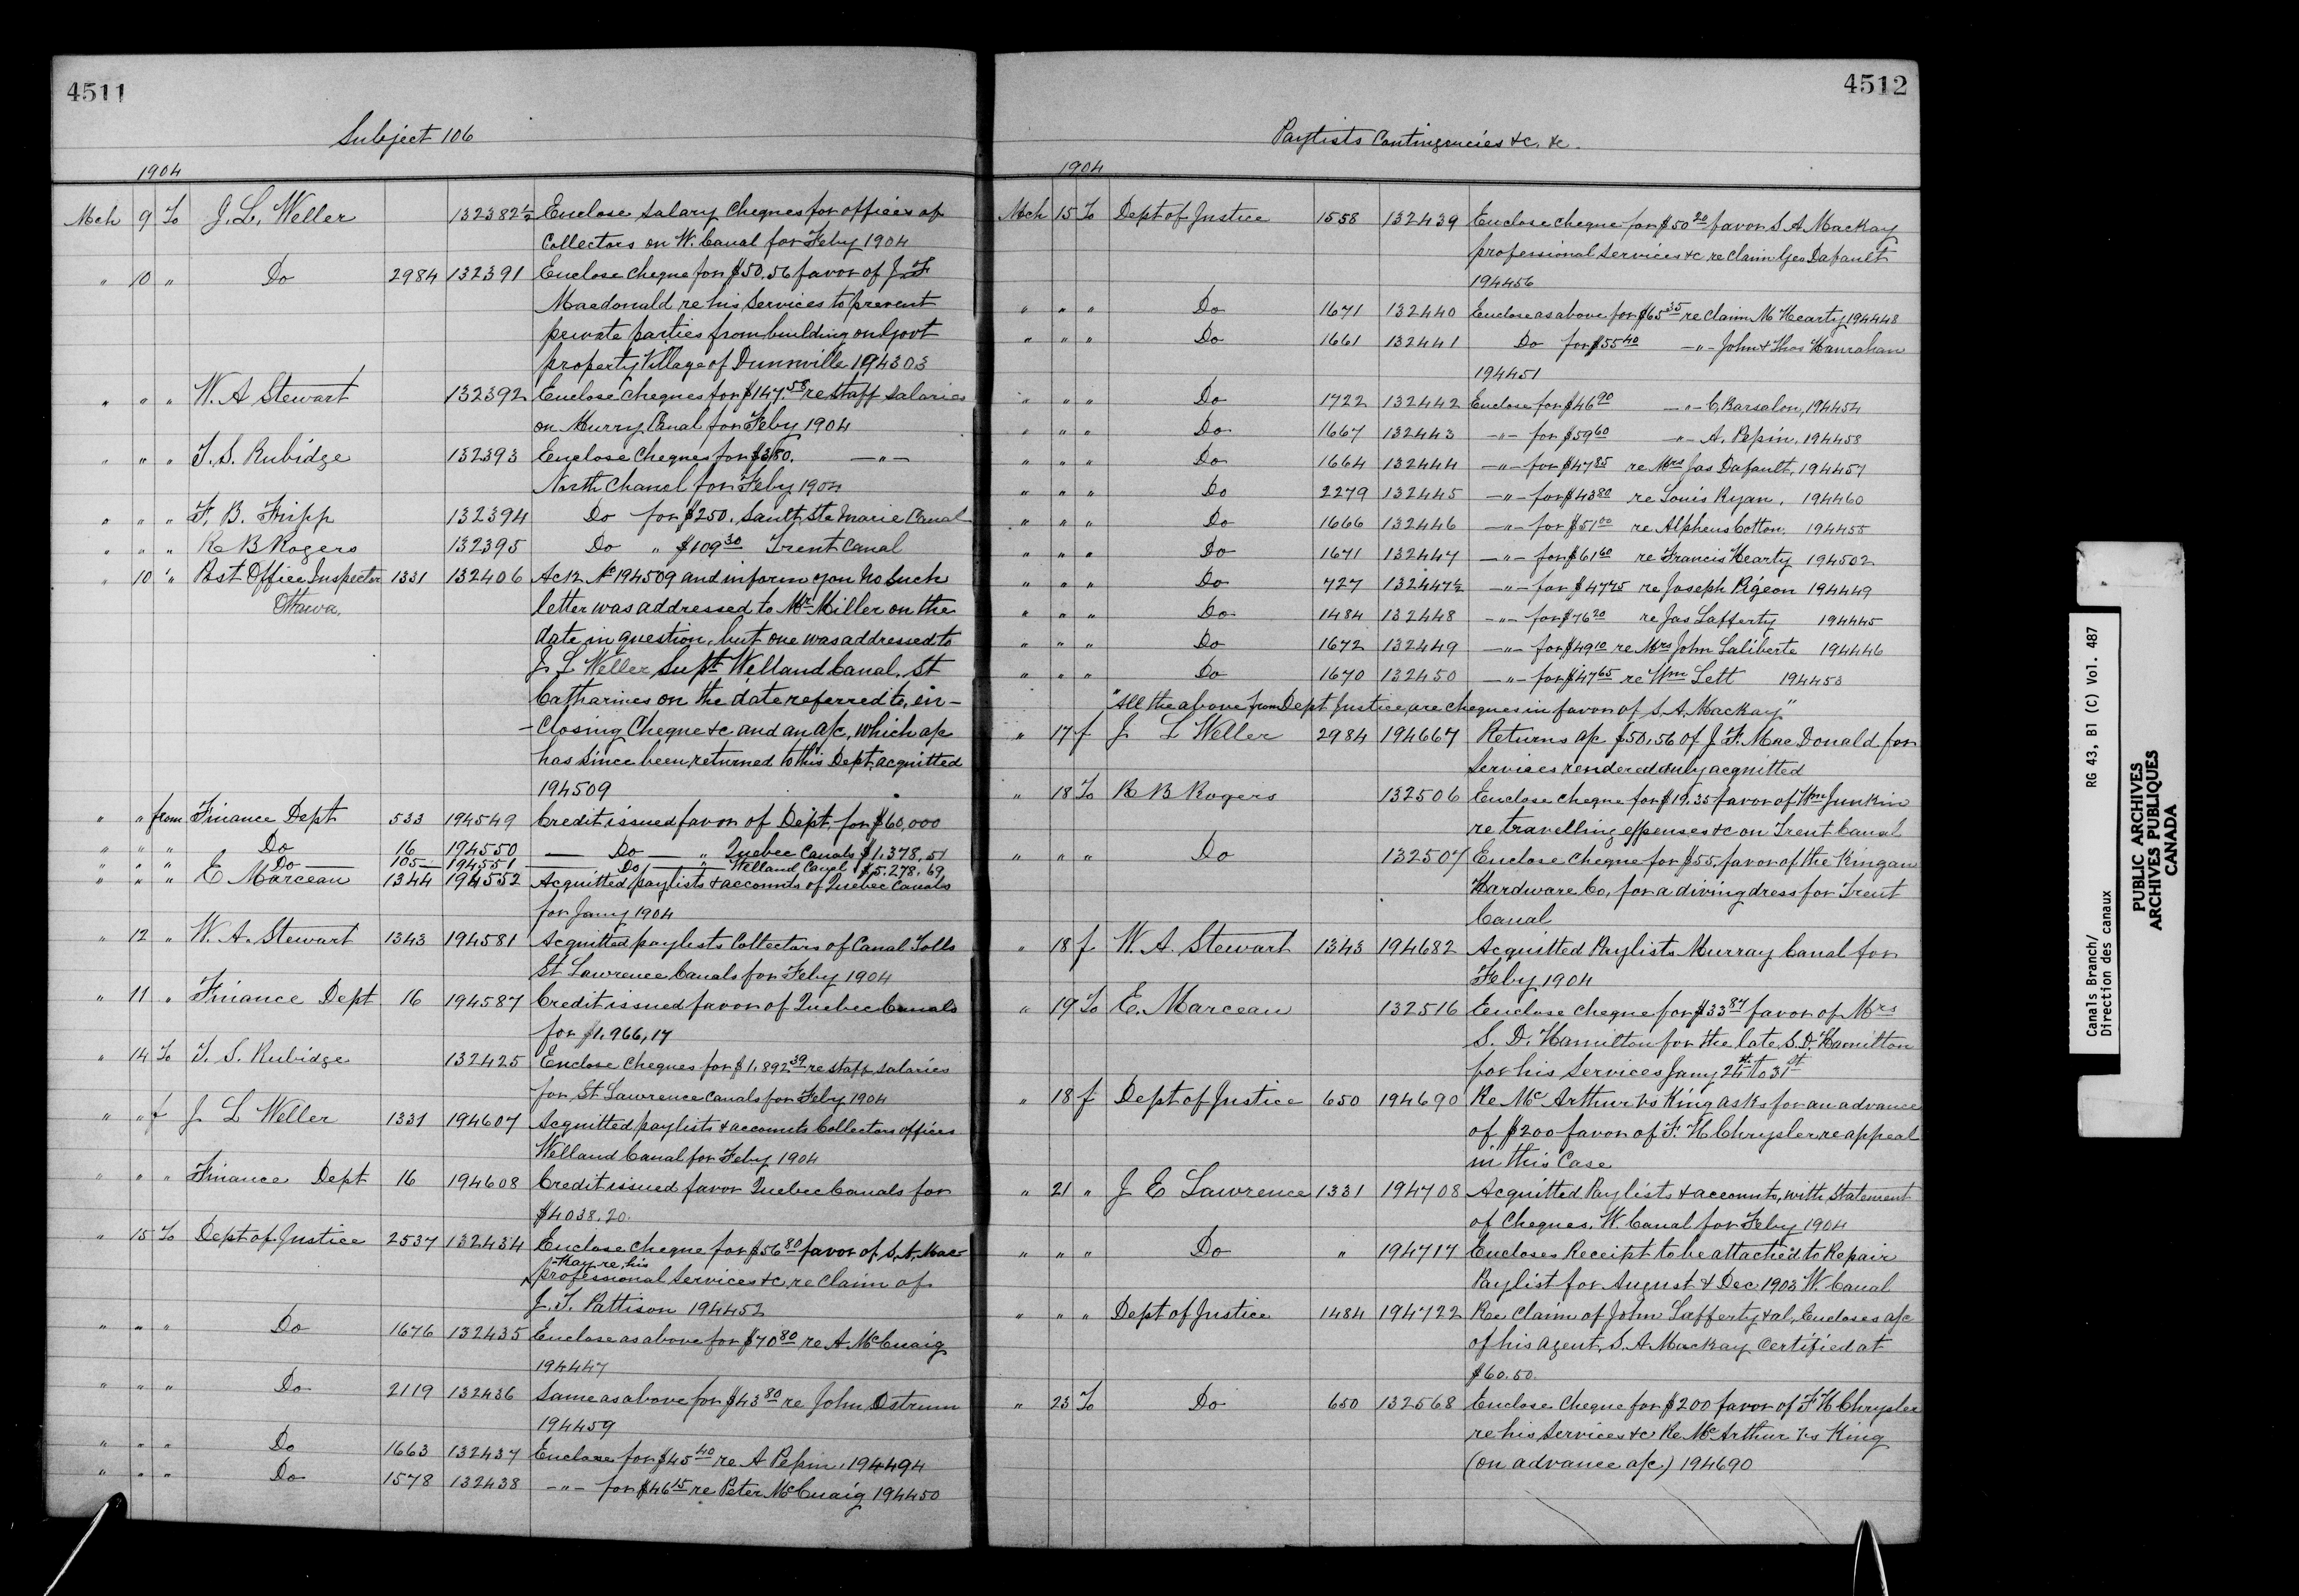 4511
Subject 106
1904
Mch 9 To J. L. Weller 132382½ Enclose salary cheques for offices of
Collectors on W. Canal for Feby 1904
" 10 " Do 2984 132391 Enclose cheque for $50.56 favor of J. F
Macdonald re his services to prevent
private parties from building on Govt
property Village of Dunnville 194303
" " " W. A Stewart 132392 Enclose cheques for $147.58 re staff salaries
on Murry Canal for Feby 1904
" " " T. S. Rubidge 132393 Enclose cheques for $380. —"—
North Chanel for Feby 1904
" " " F. B. Fripp 132394 Do for $250. Sault Ste Marie Canal
" " " R B Rogers 132395 Do " $109 30 Trent Canal
" 10 " Post Office Inspector 1331 132406 Ack No 194509 and inform you no such
Ottawa. letter was addressed to Mr Miller on the
date in question, but one was addressed to
J. L Weller Supt Welland Canal, St
Catharines on the date referred to, en-
-closing cheque &c and an a/c, which a/c
has since been returned to this Dept, acquitted
194509
" " from Finance Dept 533 194549 Credit issued favor of Dept. for $60,000
" " " Do 16 194550 — Do — " Quebec Canals $1,378.51
" " " — Do — 105 194551 — Do — Welland Canal $5.278.69
" " " E Marceau 1344 194552 Acquitted paylists & accounts of Quebec Canals
for Jany 1904
" 12 " W. A. Stewart 1343 194581 Acquitted paylists Collectors of Canal Tolls
St Lawrence Canals for Feby 1904
" 11 " Finance Dept 16 194587 Credit issued favor of Quebec Canals
for $1,966,17
" 14 To T. S. Rubidge 132425 Enclose cheques for $1,892 39 re staff salaries
for St Lawrence Canals for Feby 1904
" " f J L Weller 1331 194607 Acquitted paylists & accounts Collectors offices
Welland Canal for Feby 1904
" " " Finance Dept 16 194608 Credit issued favor Quebec Canals for
$4038.20.
" 15 To Dept of Justice 2537 132434 Enclose cheque for $56 80 favor of S. A. Mac-
-Kay re, his
professional services &c re claim of
J. T. Pattison 194452
" " " Do 1676 132435 Enclose as above for $70 80 re A McCuaig
194447
" " " Do 2119 132436 Same as above for $43 80 re John Ostrum
194459
" " " Do 1663 132437 Enclose for $45 40 re A Pepin, 194494
" " " Do 1578 132438 —"— for $46 15 re Peter McCuaig 194450
4512
Paylists Contingencies &c. &c.
1904
Mch 15 To Dept of Justice 1558 132439 Enclose cheque for $50 20 favor S A Mackay
professional services &c re claim Geo Dafault
194456
" " " Do 1671 132440 Enclose as above for $65 35 re claim M Hearty 194448
" " " Do 1661 132441 Do for $55 40 —"— John & Thos Hanrahan
194451
" " " Do 1722 132442 Enclose for $46 90 —"— C, Barsalon, 194454
" " " Do 1667 132443 —"— for $59 60 —"— A. Pepin. 194458
" " " Do 1664 132444 —"— for $47 85 re Mrs Jas Dafault, 194457
" " " Do 2279 132445 —"— for $43 80 re Louis Ryan. 194460
" " " Do 1666 132446 —"— for $51 00 re Alpheus Cotton. 194455
" " " Do 1671 132447 —"— for $61 60 re Francis Hearty 194502
" " " Do 727 132447½ —"— for $47 25 re Joseph Pigeon 194449
" " " Do 1484 132448 —"— for $76 20 re Jas Lafferty 194445
" " " Do 1672 132449 —"— for $49 10 re Mrs John Laliberte 194446
" " " Do 1670 132450 —"— for $47 65 re Wm Lett 194453
"All the above from Dept Justice, are cheques in favor of S. A. Mackay"
" 17 f J L Weller 2984 194667 Returns a/c $50,56 of J. F. MacDonald for
services rendered duly acquitted
" 18 To R B Rogers 132506 Enclose cheque for $19.35 favor of Wm Junkin
re travelling expenses &c on Trent Canal
" " " Do 132507 Enclose cheque for $55. favor of the Kingan
Hardware Co, for a diving dress for Trent
Canal
" 18 f W. A. Stewart 1343 194682 Acquitted Paylists Murray Canal for
Feby 1904
" 19 To E. Marceau 132516 Enclose cheque for $33 87 favor of Mrs
S. D. Hamilton for the late S. D. Hamilton
for his services Jany to 31st
" 18 f Dept of Justice 650 194690 Re McArthur vs King asks for an advance
of $200 favor of F. H Chrysler, re appeal
in this case
" 21 " J E Lawrence 1331 194708 Acquitted Paylists & accounts, with statement
of cheques. W. Canal for Feby 1904
" " " Do " 194717 Encloses Receipt to be attached to Repair
Paylist for August & Dec 1903 W. Canal
" " " Dept of Justice 1484 194722 Ree Claim of John Lafferty & al, Encloses a/c
of his agent, S. A. Mackay certified at
$60.50.
" 23 To Do 650 132568 Enclose cheque for $200 favor of F H Chrysler
re his services &c Re McArthur vs King
(on advance a/c) 194690
Canals Branch/ RG 43, B1 (C) Vol. 487
Direction des canaux
PUBLIC ARCHIVES
ARCHIVES PUBLIQUES
CANADA